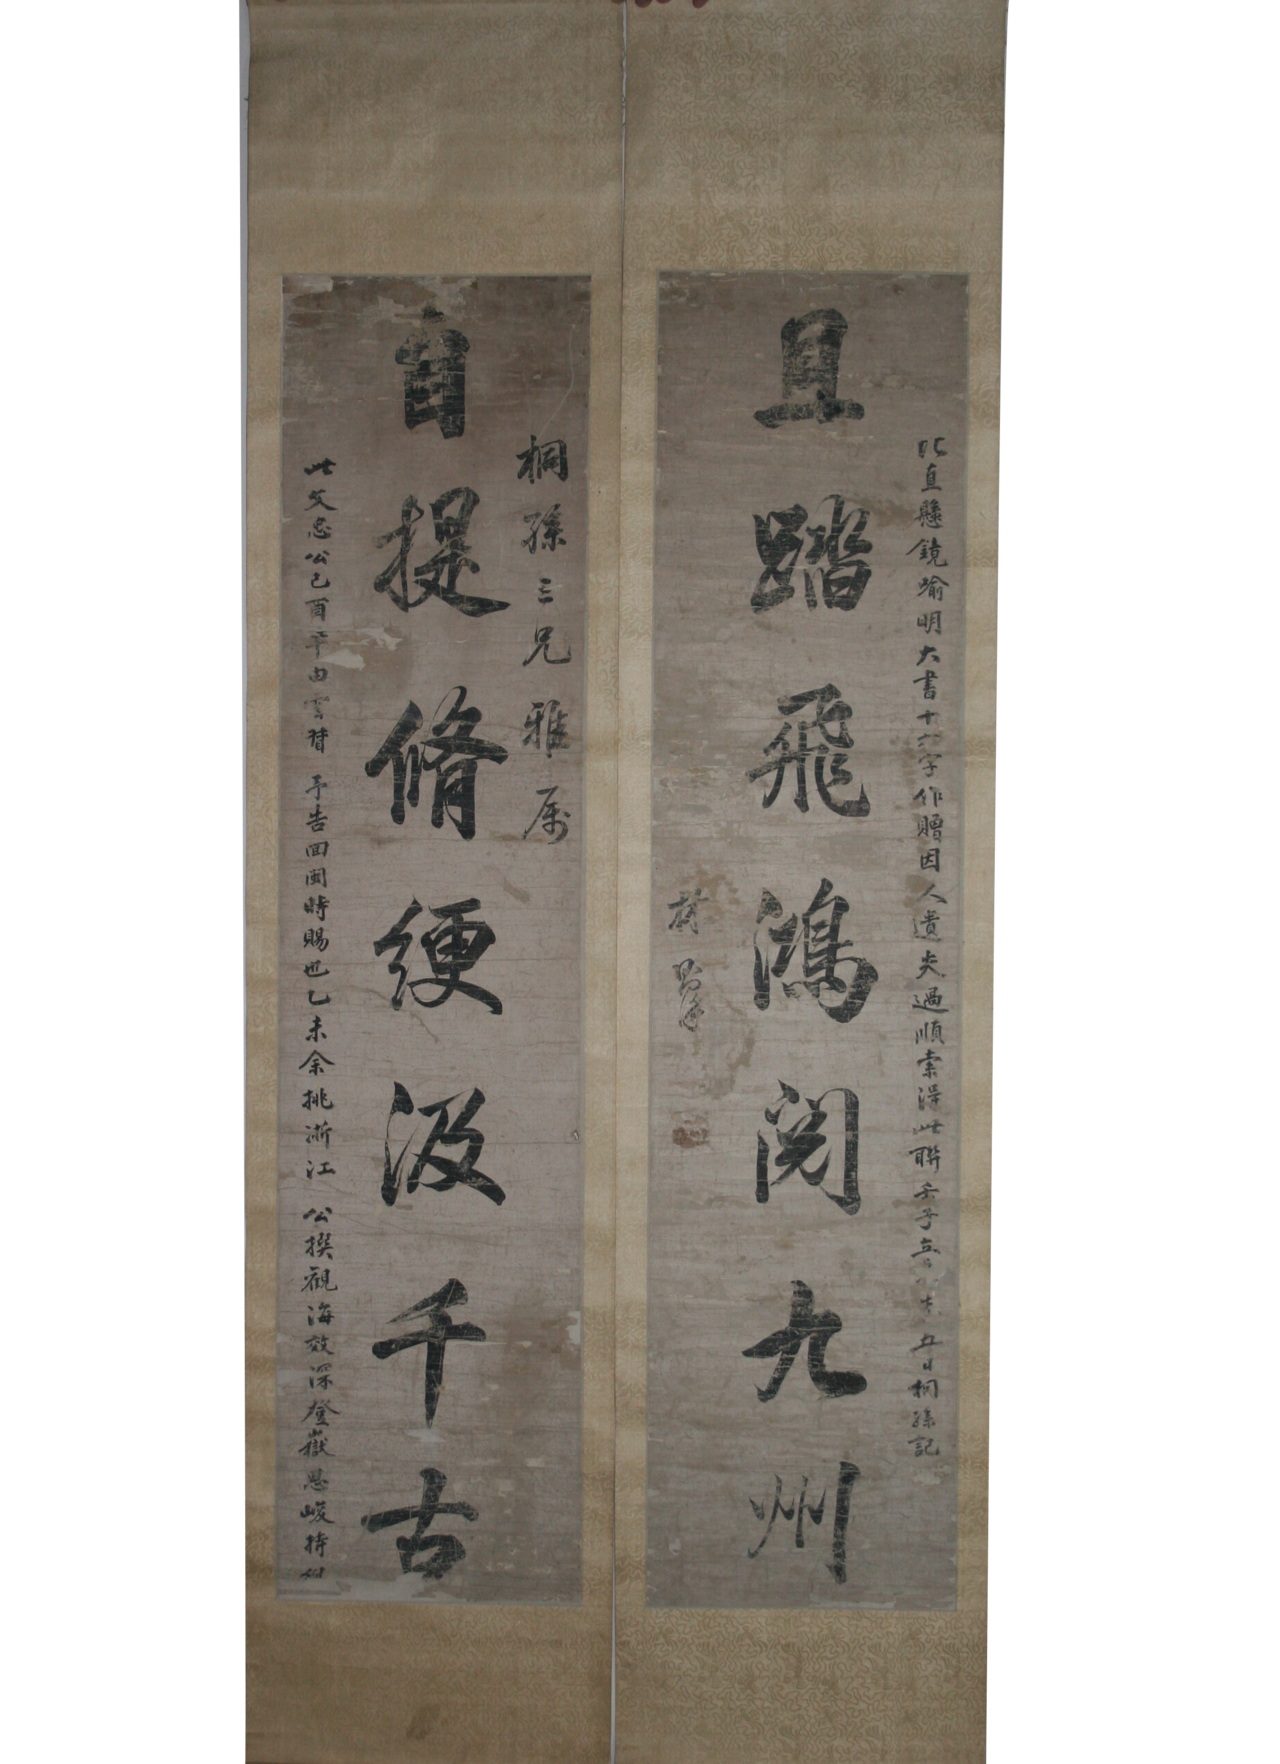 自提脩綆汲千古
桐孫三兄雅屬
此文忠公己酉年由雲督予告回閩時賜也乙未余挑浙江公撰觀海效深登嶽思峻持
比直懸鏡喻明大書十六字作贈因人遺失過順索得此聯壬子五日桐孫記
且踏飛鴻閱九州
林